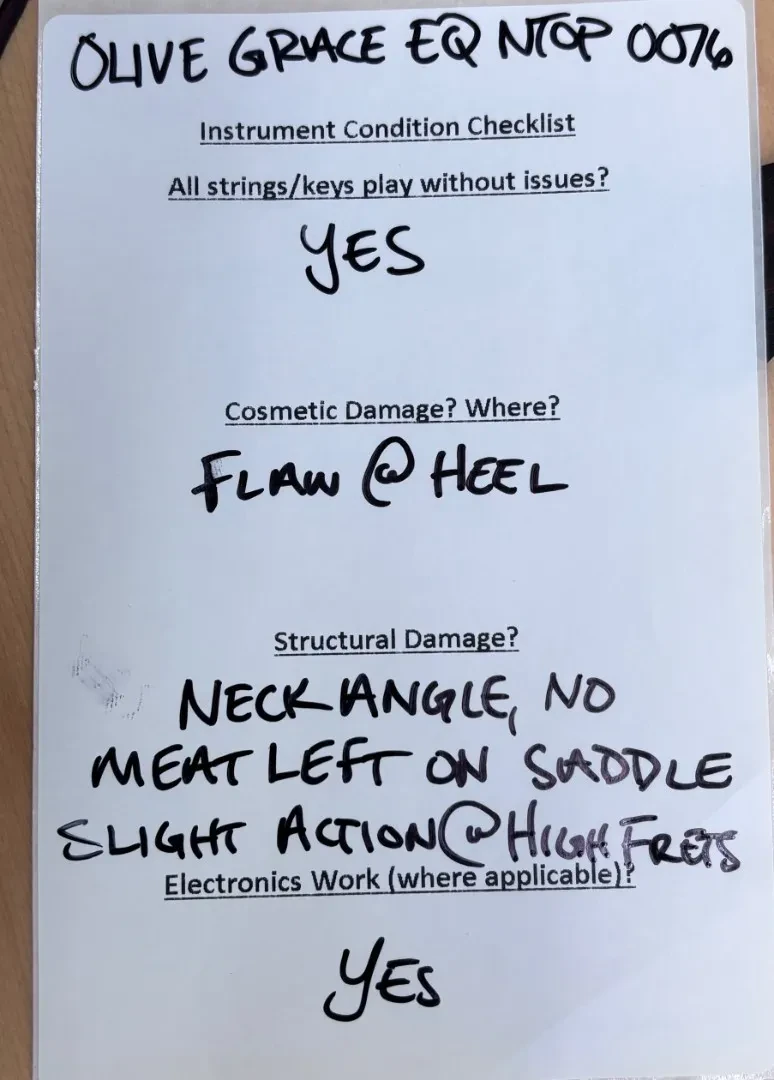 OLIVE GRACE EQ NTOP 0076
Instrument Condition Checklist
All strings/keys play without issues?
YES
Cosmetic Damage? Where?
FLAW @ HEEL
Structural Damage?
NECK ANGLE, NO
MEAT LEFT ON SADDLE
SLIGHT ACTION @ HIGH FRETS
Electronics Work (where applicable)?
YES